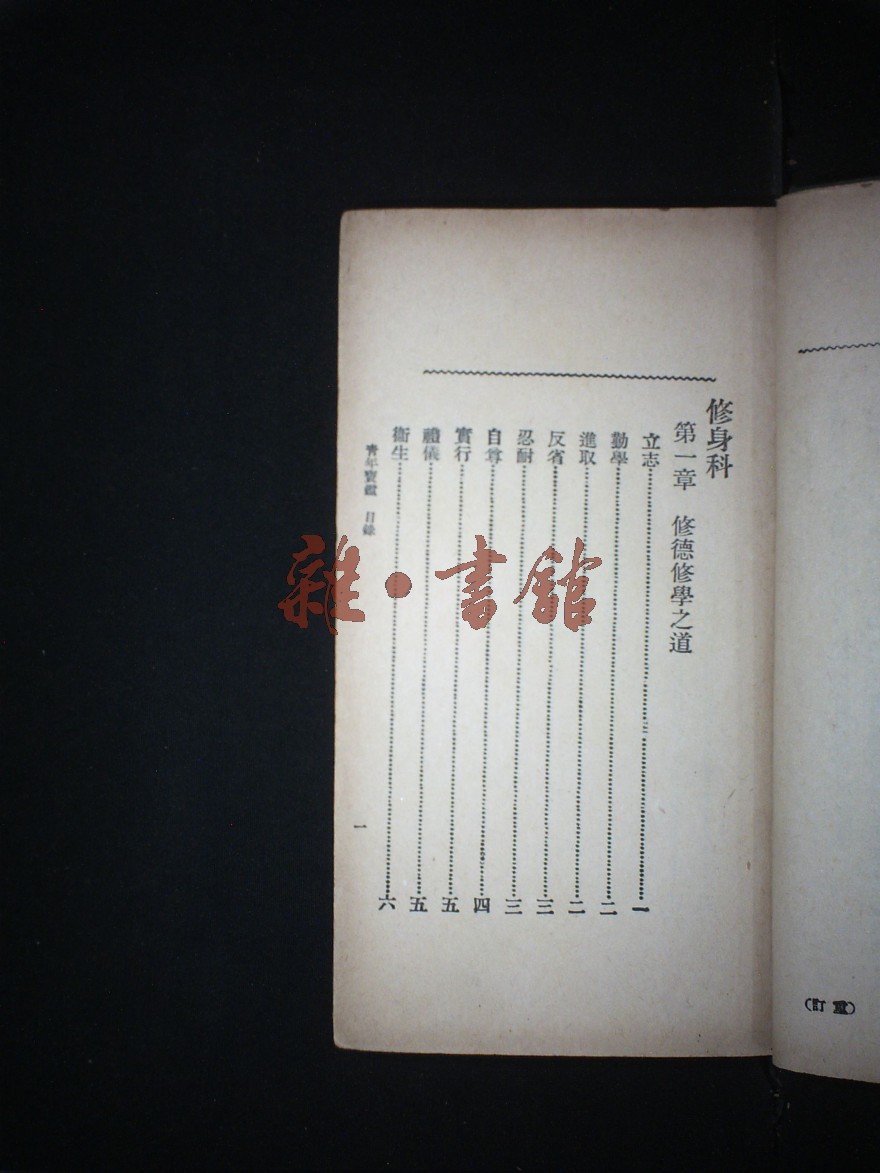 修身科
第一章 修德修學之道
立志……一
勤學……二
進取……二
反省……三
忍耐……三
自尊……四
實行……五
禮儀……五
衞生……六
青年寶鑑 目錄
一
(訂重)
雜·書館